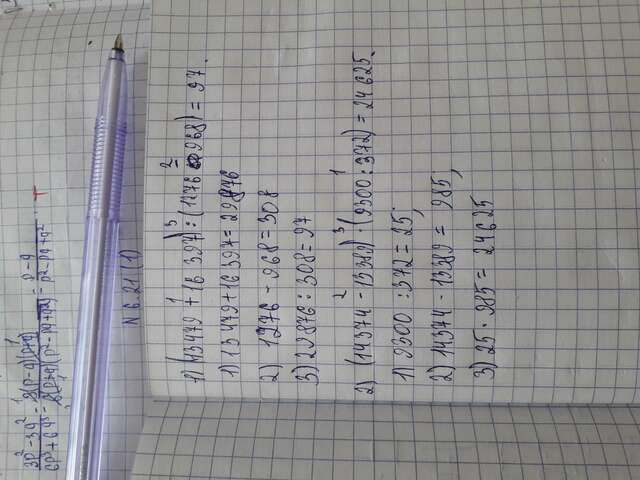 3p²-3q² / 6p³+6q³ = 3(p-q)(p+q) / 6(p+q)(p²-pq+q²) = p-q / p²-pq+q²
N 6.21 (1)
1) (13479 + 16397) : (1276 - 968) = 97.
1) 13479 + 16397 = 29876
2) 1276 - 968 = 308
3) 29876 : 308 = 97
2) (14374 - 13389) · (9300 : 372) = 24625.
1) 9300 : 372 = 25;
2) 14374 - 13389 = 985;
3) 25 · 985 = 24625